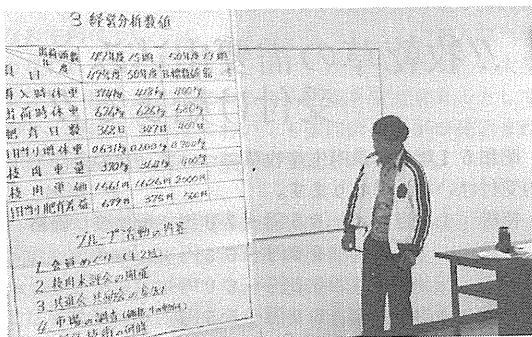 3 経営分析数値
出荷頭数 49年度 15頭 50年度 13頭
年度
項目 49年度 50年度 目標数値
導入時体重 374kg 418kg 400kg
出荷時体重 626kg 626kg 680kg
肥育日数 368日 347日 400日
1日当り増体重 0.631kg 0.700kg
枝肉重量 370kg 364kg 400kg
枝肉単価 1,661円 1,626円 2,000円
1日当り肥育差益 679円 375円 500円
グループ活動の内容
1 会員めぐり (年2回)
2 枝肉共評会の開催
3 共進会 共励会の参加
4 市場の調査